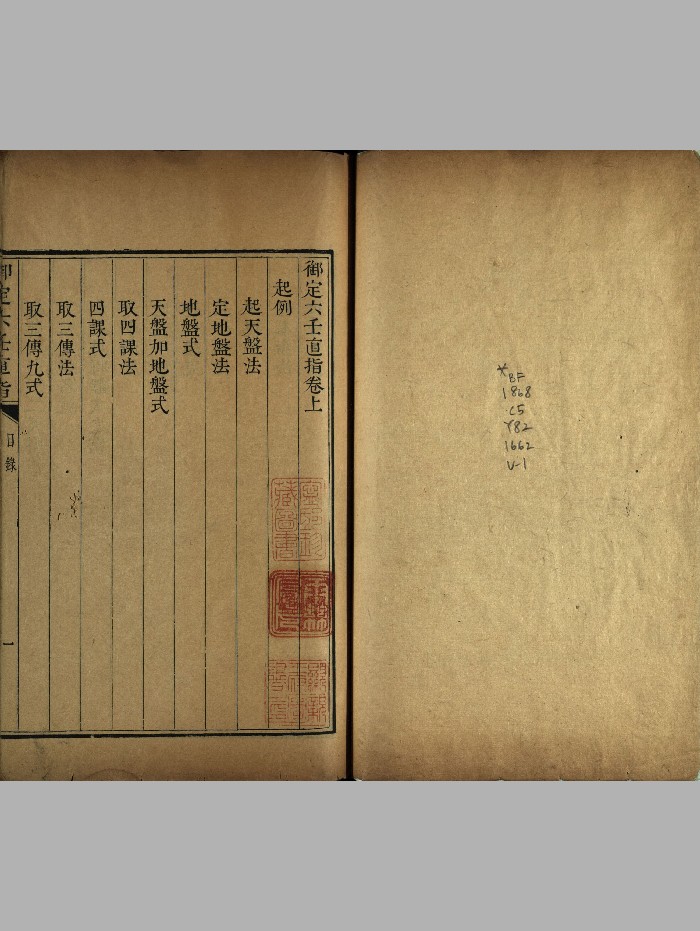 御定六壬直指卷上
起例
起天盤法
定地盤法
地盤式
天盤加地盤式
取四課法
四課式
取三傳法
取三傳九式
御定六壬直指
目錄
一
*BF
1868
C5
Y82
1662
V-1